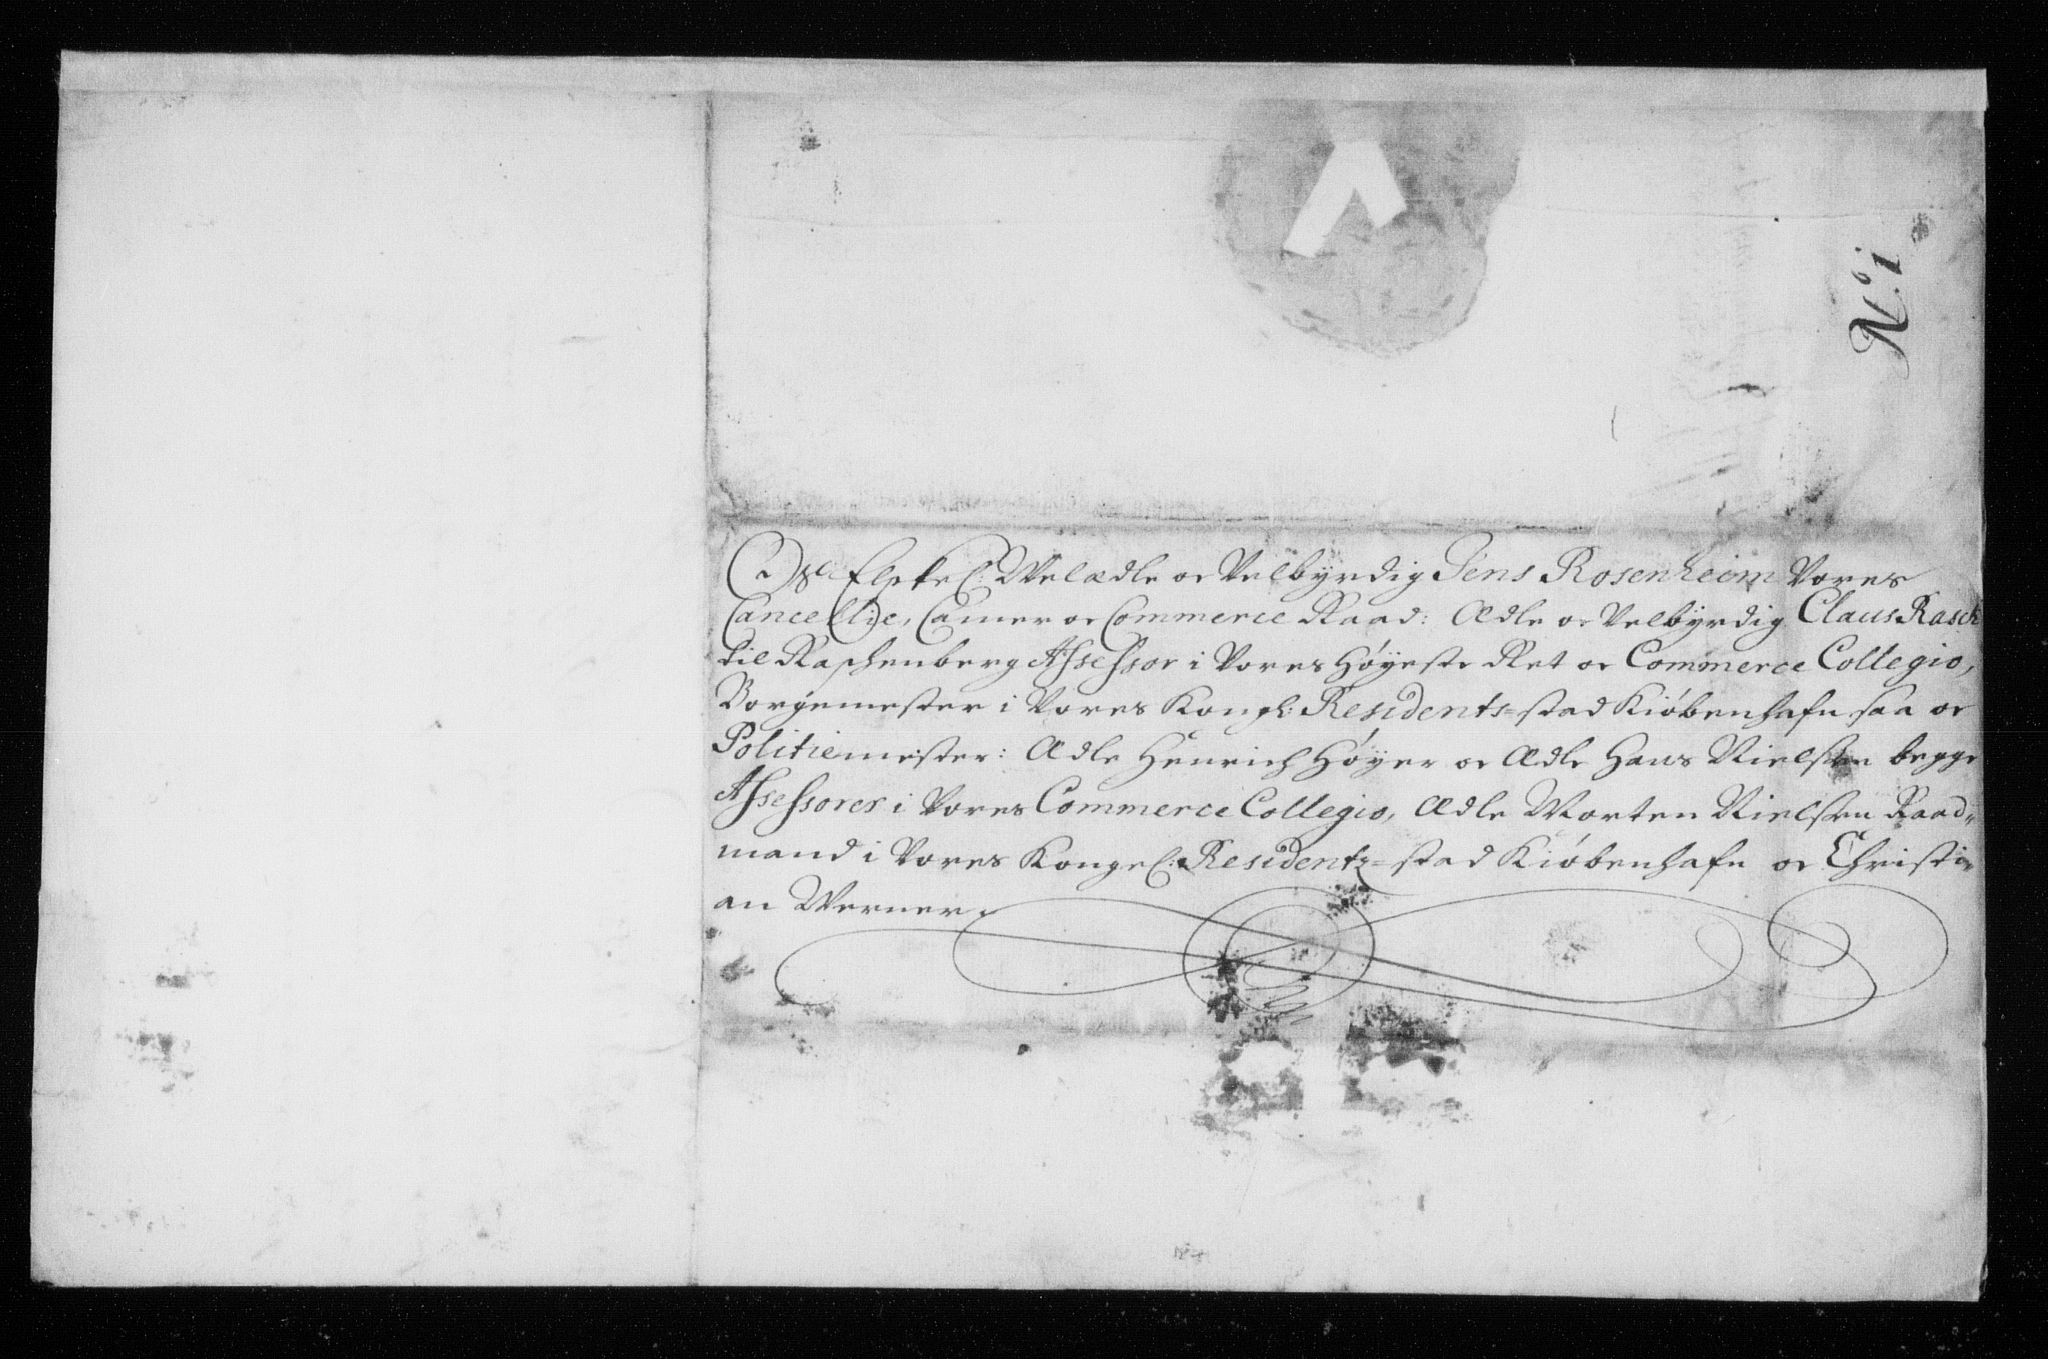 No. i
Os Elskel: Welædle oc Velbyrdig Jens Rosenheim Vores
Cancellie, Camer oc Commerce Raad: Ædle oc Velbyrdig Claus Rasch
til Raschenberg Assessor i Vores Høyeste Ret oc Commerce Collegio,
Borgemester i Vores Kongl: Residents=stad Kiøbenhafn saa oc
Politiemester: Ædle Henrich Høyer oc Ædle Hans Nielsen begge
Assessorer i Vores Commerce Collegio, Ædle Morten Nielsen Raad=
mand i Vores Kongel: Residentz=stad Kiøbenhafn oc Christi=
an Werner